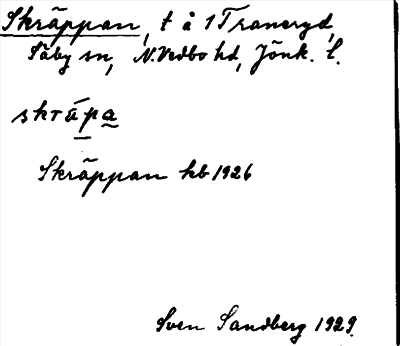 Skräppan, t å 1 Traneryd,
Säby sn, N. Vedbo hd, Jönk. l.
skräpa
Skräppan hb 1926
Sven Sandberg 1929.